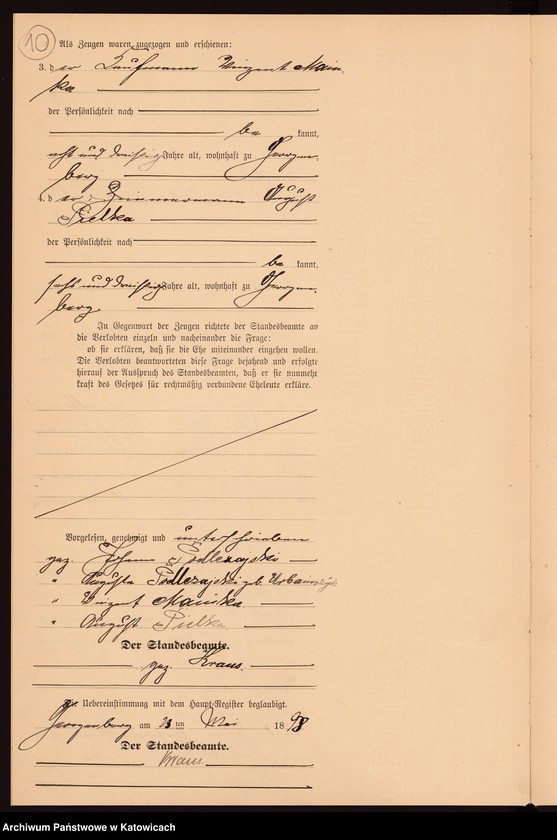 10
Als Zeugen waren zugezogen und erschienen:
3. der Kaufmann Vinzent Mains-
ka
der Persönlichkeit nach
be kannt,
acht und dreißig Jahre alt, wohnhaft zu Georgen-
berg
4. der Zimmermann August
Pielka
der Persönlichkeit nach
be kannt,
sechs und dreißig Jahre alt, wohnhaft zu Georgen-
berg
In Gegenwart der Zeugen richtete der Standesbeamte an
die Verlobten einzeln und nacheinander die Frage:
ob sie erklären, daß sie die Ehe miteinander eingehen wollen.
Die Verlobten beantworteten diese Frage bejahend und erfolgte
hierauf der Ausspruch des Standesbeamten, daß er sie nunmehr
kraft des Gesetzes für rechtmäßig verbundene Eheleute erkläre.
Vorgelesen, genehmigt und unterschrieben
gez. Johann Podlezajski
" Augusta Podlezajski gb. Urbainczyk
" Vinzent Mainska
" August Pielka
Der Standesbeamte.
gez. Kraus.
Die Uebereinstimmung mit dem Haupt-Register beglaubigt.
Georgenberg am 23 ten Mai 1898
Der Standesbeamte.
Kraus.
Archiwum Państwowe w Katowicach